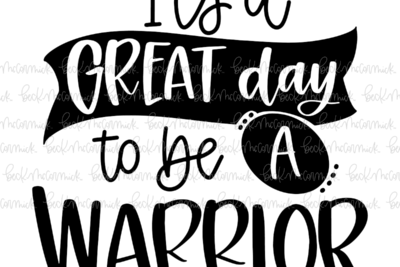 It's a
GREAT day
to be A
WARRIOR